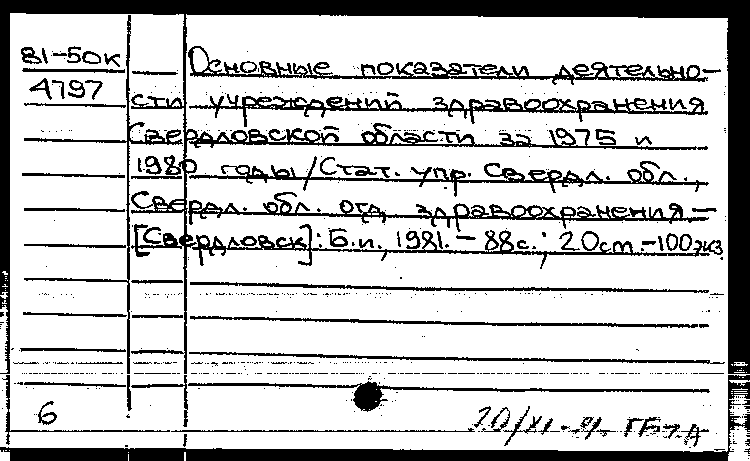 81-50к Основные показатели деятельно-
4797 сти учреждений здравоохранения
Свердловской области за 1975 и
1980 годы / Стат. упр. Свердл. обл.,
Свердл. обл. отд. здравоохранения.—
[Свердловск]: Б.и., 1981.— 88с.; 20см.—100экз.
6
20/XI-81.